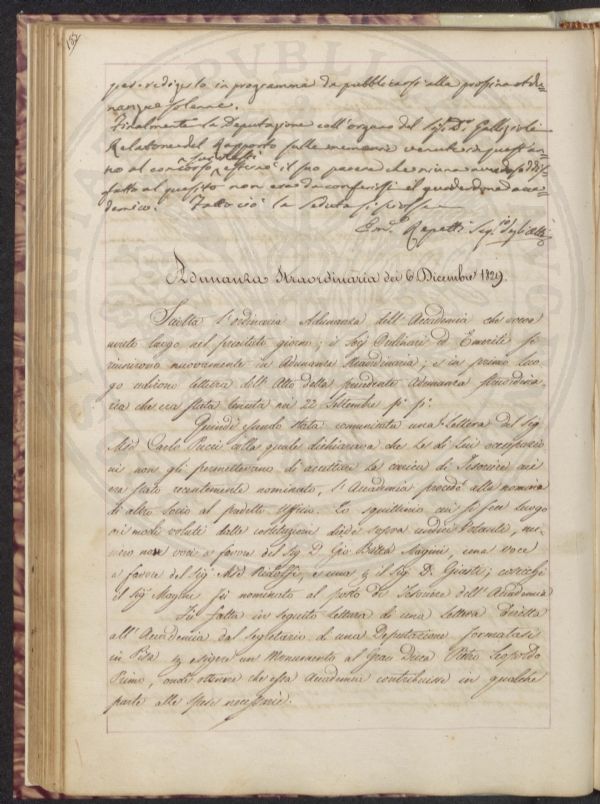 152
per redigerlo in programma da pubblicarsi alla prossima adu=
nanza solenne.
Finalmente la Deputazione coll'organo del Sig. D. Gallizioli
Relatore del Rapporto sulle memorie venute in quest'an=
no al concorso esternò il suo parere che niuna avendo sodis=
fatto al quesito non era da conferirsi il guiderdone acca=
demico. Fatto ciò la Seduta si sciolse
Em. Repetti Seg. degli Atti
Adunanza Straordinaria dei 6 Dicembre 1829.
Sciolta l'ordinaria Adunanza dell'Accademia che aveva
avuto luogo nel precitato giorno; i Sigg. Ordinari ed Emeriti si
riunirono nuovamente in Adunanza Straordinaria; e in primo luo=
go udirono lettura dell'Atto della precedente Adunanza straordina=
ria che era stata tenuta nei 22 Settembre p. p.
Quindi essendo stata comunicata una Lettera del Sig.
March. Carlo Pucci colla quale dichiarava che le di Lui occupazio
ni non gli permettevano di accettare la carica di Tesoriere cui
era stato recentemente nominato, l'Accademia procedé alla nomina
di altro Socio al predetto Ufficio. Lo squittinio cui si fece luogo
nei modi voluti dalle costituzioni diede sopra undici Votanti, nu=
mero nove voci a favore del Sig. D. Gio. Batta Magini, una voce
a favore del Sig. March. Ridolfi, e una p. il Sig. D. Giusti; cosicchè
il Sig. fu nominato al posto di Tesoriere dell'Accademia
Fu fatta in seguito lettura di una Lettera diretta
all'Accademia dal Segretario di una Deputazione formatasi
in Pisa p. erigere un Monumento al Gran Duca Pietro Leopoldo
Primo, onde ottenere che essa Accademia contribuisse in qualche
parte alle spese necessarie.